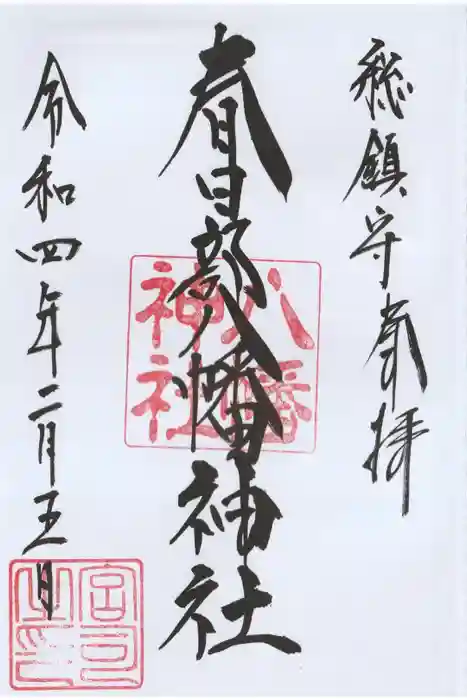 総鎮守奉拝
春日部八幡神社
八幡神社
令和四年二月五日
宮司之印